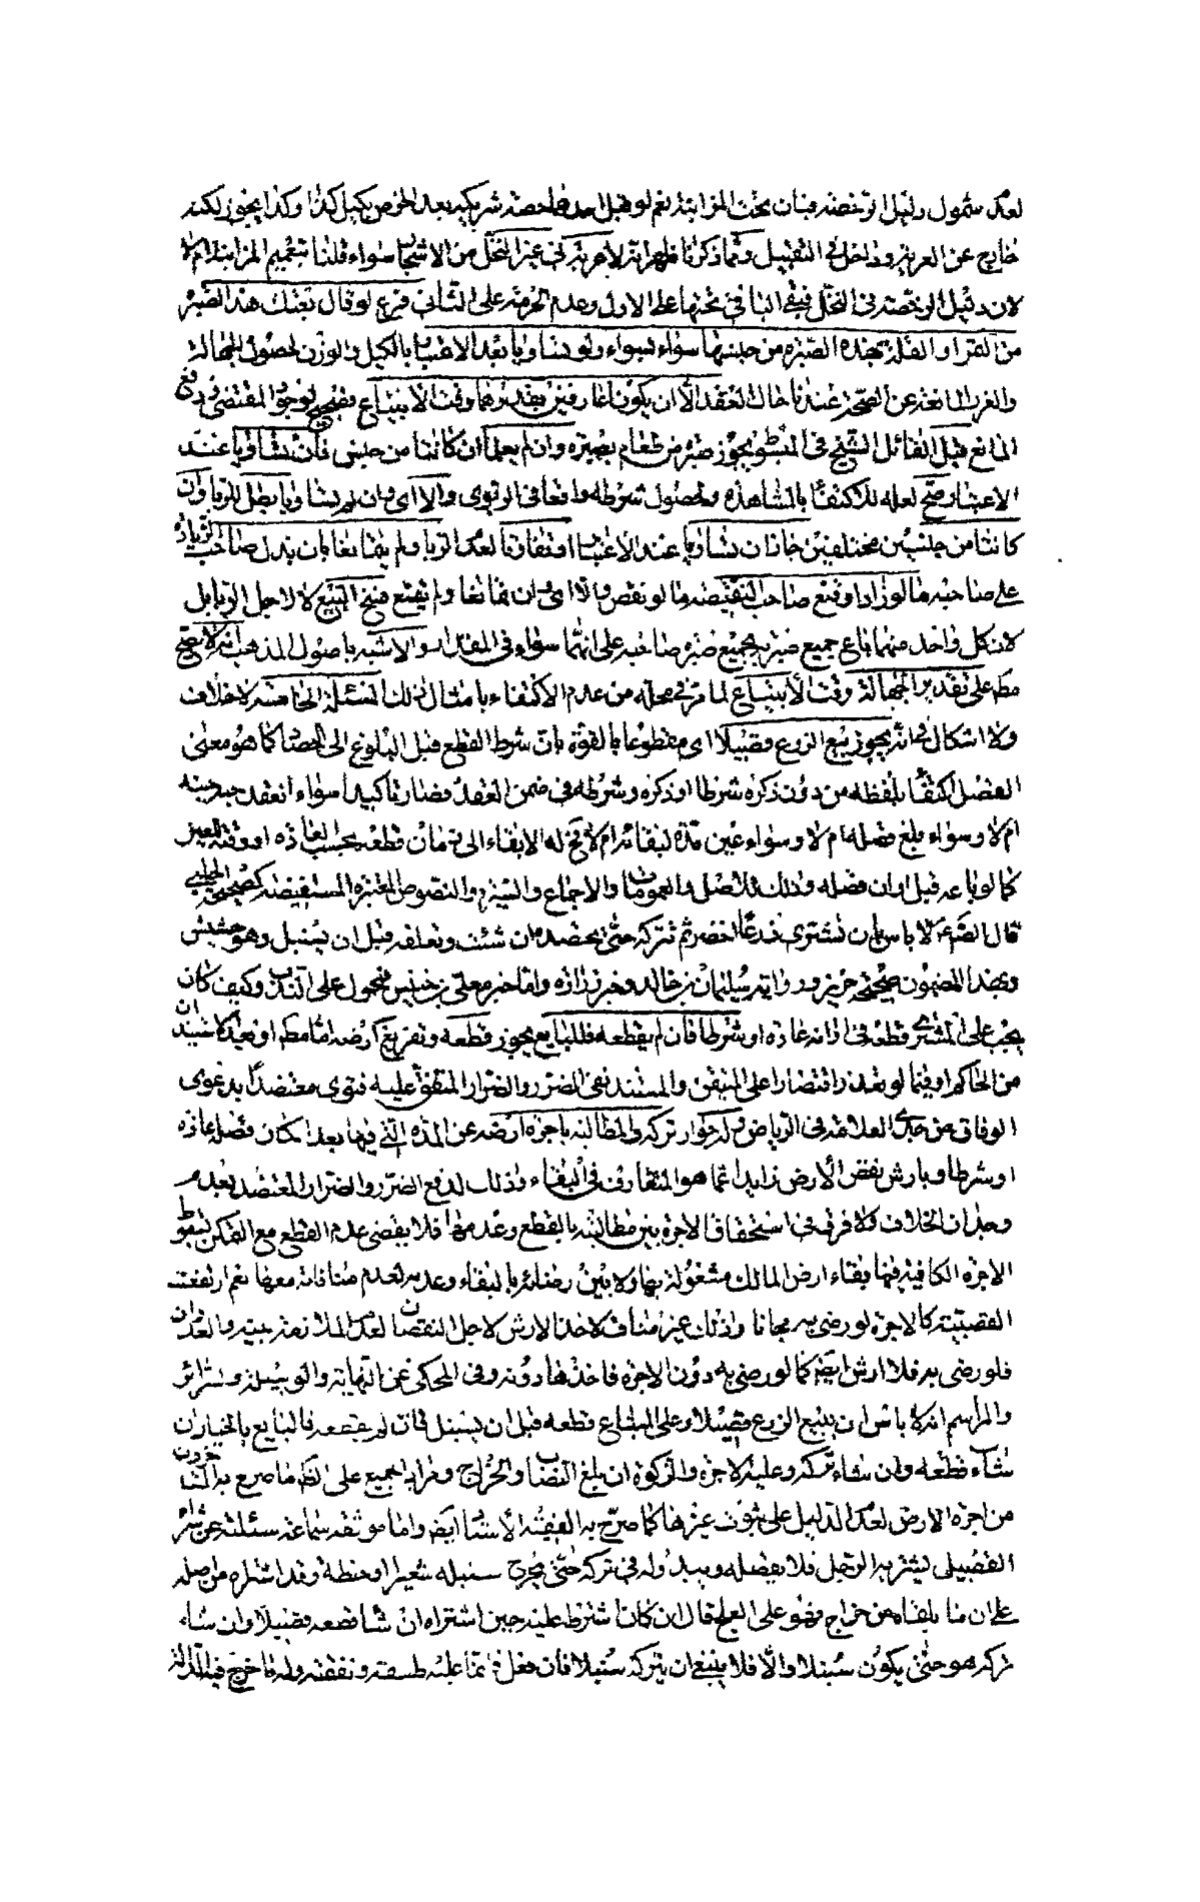 لعدم شمول دليل الرخصة فبان تحت المزابنة نعم لو قبل احدهما حصة شريكيه بعد الخرص بكيل كذا وكذا يجوز لكنه
خارج عن العرية وداخل في التقبيل ومما ذكرنا ظهر انه لا عرية في غير النخل من الاشجار سواء قلنا بتعميم المزابنة ام لا
لان دليل الرخصة في النخل فيبقى الباقي تحتها على الاول وعدم الحرمة على الثاني فرع لو قال بعتك هذه الصبرة
من التمر او الغلة بهذه الصبرة من جنسها سواء بسواء ولو تساويا بعد الاعتبار بالكيل والوزن لحصول الجهالة
والغرر المانعة عن الصحة عندنا حال العقد الا ان يكونا عارفين بقدرهما وقت الابتياع فيصح لوجود المقتضي ودفع
المانع قيل القائل الشيخ في المبسوط يجوز صبرة من طعام بصبرة وان لم يعلما ان كانتا من جنس فان تساويا عند
الاعتبار صح لعله للاكتفاء بالمشاهدة وحصول شرطه واقعا في الربوي والا اى وان لم يتساويا بطل للربا وان
كانتا من جنسين مختلفين جاز ان تساويا عند الاعتبار او تفاوتا لعدم الربا ولم يتمانعا بان بذل صاحب الزيادة
على صاحبه ما لو زاد او قنع صاحب النقيصة ما لو نقص والا اى ان تمانعا ولم يقنع فسخ البيع لا لاجل الربا بل
لان كل واحد منهما باع جميع صبرته بجميع صبرة صاحبه على انهما سواء في المقدار والاشبه باصول المذهب انه لا يصح
مطم على تقدير الجهالة وقت الابتياع لما مر في محله من عدم الاكتفاء بامثال ذلك المسئلة الخامسة لا خلاف
ولا اشكال في انه يجوز بيع الزرع قصيلا اى مقطوعا بالقوة بان شرط القطع قبل البلوغ الى الحصاد كما هو معنى
القصيل اكتفاء بلفظه من دون ذكره شرطا او ذكره وشرطه في ضمن العقد فصار تاكيدا سواء انعقد حبه حينه
ام لا وسواء بلغ فصله ام لا وسواء عين مدة لبقائه ام لا فح له الابقاء الى زمان قطعه بحسب العادة او وقته المعين
كما لو باعه قبل اوان فصله وذلك للاصل والعمومات والاجماع والسيرة والنصوص المعتبرة المستفيضة كصحيحة الحلبي
قال الص ع لا باس بان تشتري زرعا اخضر ثم تتركه حتى تحصده ان شئت وتعلفه قبل ان يسنبل وهو حشيش
وبهذا المضمون صحيحة حريز ورواية سليمان بن خالد وخبر زرارة واما خبر معلى بن خنيس فمحمول على الندب وكيف كان
يجب على المشتري قطعه في اوانه عادة او شرطا فان لم يقطعه فللبايع يجوز قطعه وتفريغ ارضه اما مطم او بعد الاستيذان
من الحاكم او فيما لو تعذر اقتصارا على المتيقن والمستند نفي الضرر والضرار المتفق عليه فتوى معتضدا بدعوى
الوفاق عن جدى العلامة في الرياض وله جواز تركه والمطالبة باجرة ارضه عن المدة التي فيها بعد امكان فصله عادة
او شرطا وبارش نقص الارض زايدا عما هو المتعارف في البقاء وذلك لدفع الضرر والضرار المعتضد بعدم
وجدان الخلاف ولا فرق في استحقاق الاجرة بين مطالبته بالقطع وعدمها فلا يقضي عدم القطع مع التمكن بسقوط
الاجرة الكافية فيها بقاء ارض المالك مشغولة بها ولا بين رضائه بالبقاء وعدمه لعدم منافاته معها نعم ارتفعت
الغصبية كالاجرة لو رضي به مجانا وذلك غير مناف لاخذ الارش لاجل النقصان لعدم الملازمة بينه والعدوان
فلو رضي به فلا ارش ايضا كما لو رضي به دون الاجرة فاخذها دونه وفي المحكي عن النهاية والوسيلة وسرائر
والمراسم انه لا باس ان يبيع الزرع قصيلا وعلى المبتاع قطعه قبل ان يسنبل فان لم يقطعه فالبايع بالخيار ان
شاء قطعه وان شاء تركه وعليه الاجرة والزكوة ان بلغ النصاب والخراج ومراد الجميع على الظ ما صرح به المتاخرون
من اجرة الارض لعدم الدليل على ثبوت غيرها كما صرح به الفقيه الاستاد ايضا واما موثقه سماعة سئلته عن شراء
القصيل يشتريه الرجل فلا يقصله ويبدو له في تركه حتى يخرج سنبله شعيرا او حنطة وقد اشتراه من اصله
على ان ما يلقاه من خراج فهو على العلج قال ان كان اشترط عليه حين اشتراه ان شاء قطعه قصيلا وان شاء
تركه هو حتى يكون سنبلا والا فلا ينبغي ان يتركه سنبلا فان فعل فانما عليه طسقه ونفقته وله ما خرج فيه الدلالة